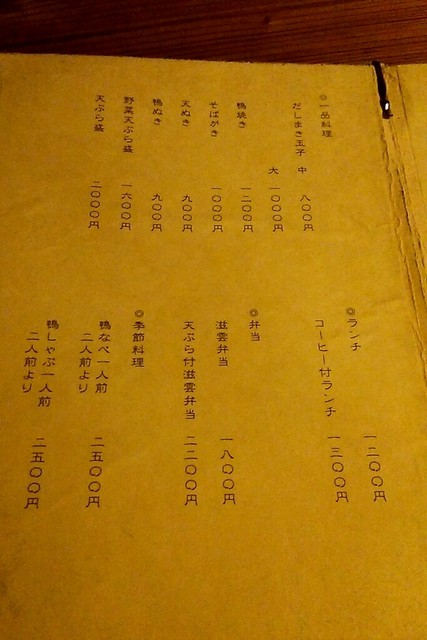 ◎一品料理
だしまき玉子 中 八〇〇円
大 一〇〇〇円
鴨焼き 一二〇〇円
そばがき 一〇〇〇円
天ぬき 九〇〇円
鴨ぬき 九〇〇円
野菜天ぷら盛 一六〇〇円
天ぷら盛 二〇〇〇円
◎ランチ 一二〇〇円
コーヒー付ランチ 一三〇〇円
◎弁当
滋雲弁当 一八〇〇円
天ぷら付滋雲弁当 二二〇〇円
◎季節料理
鴨なべ一人前 二五〇〇円
二人前より
鴨しゃぶ一人前 二五〇〇円
二人前より